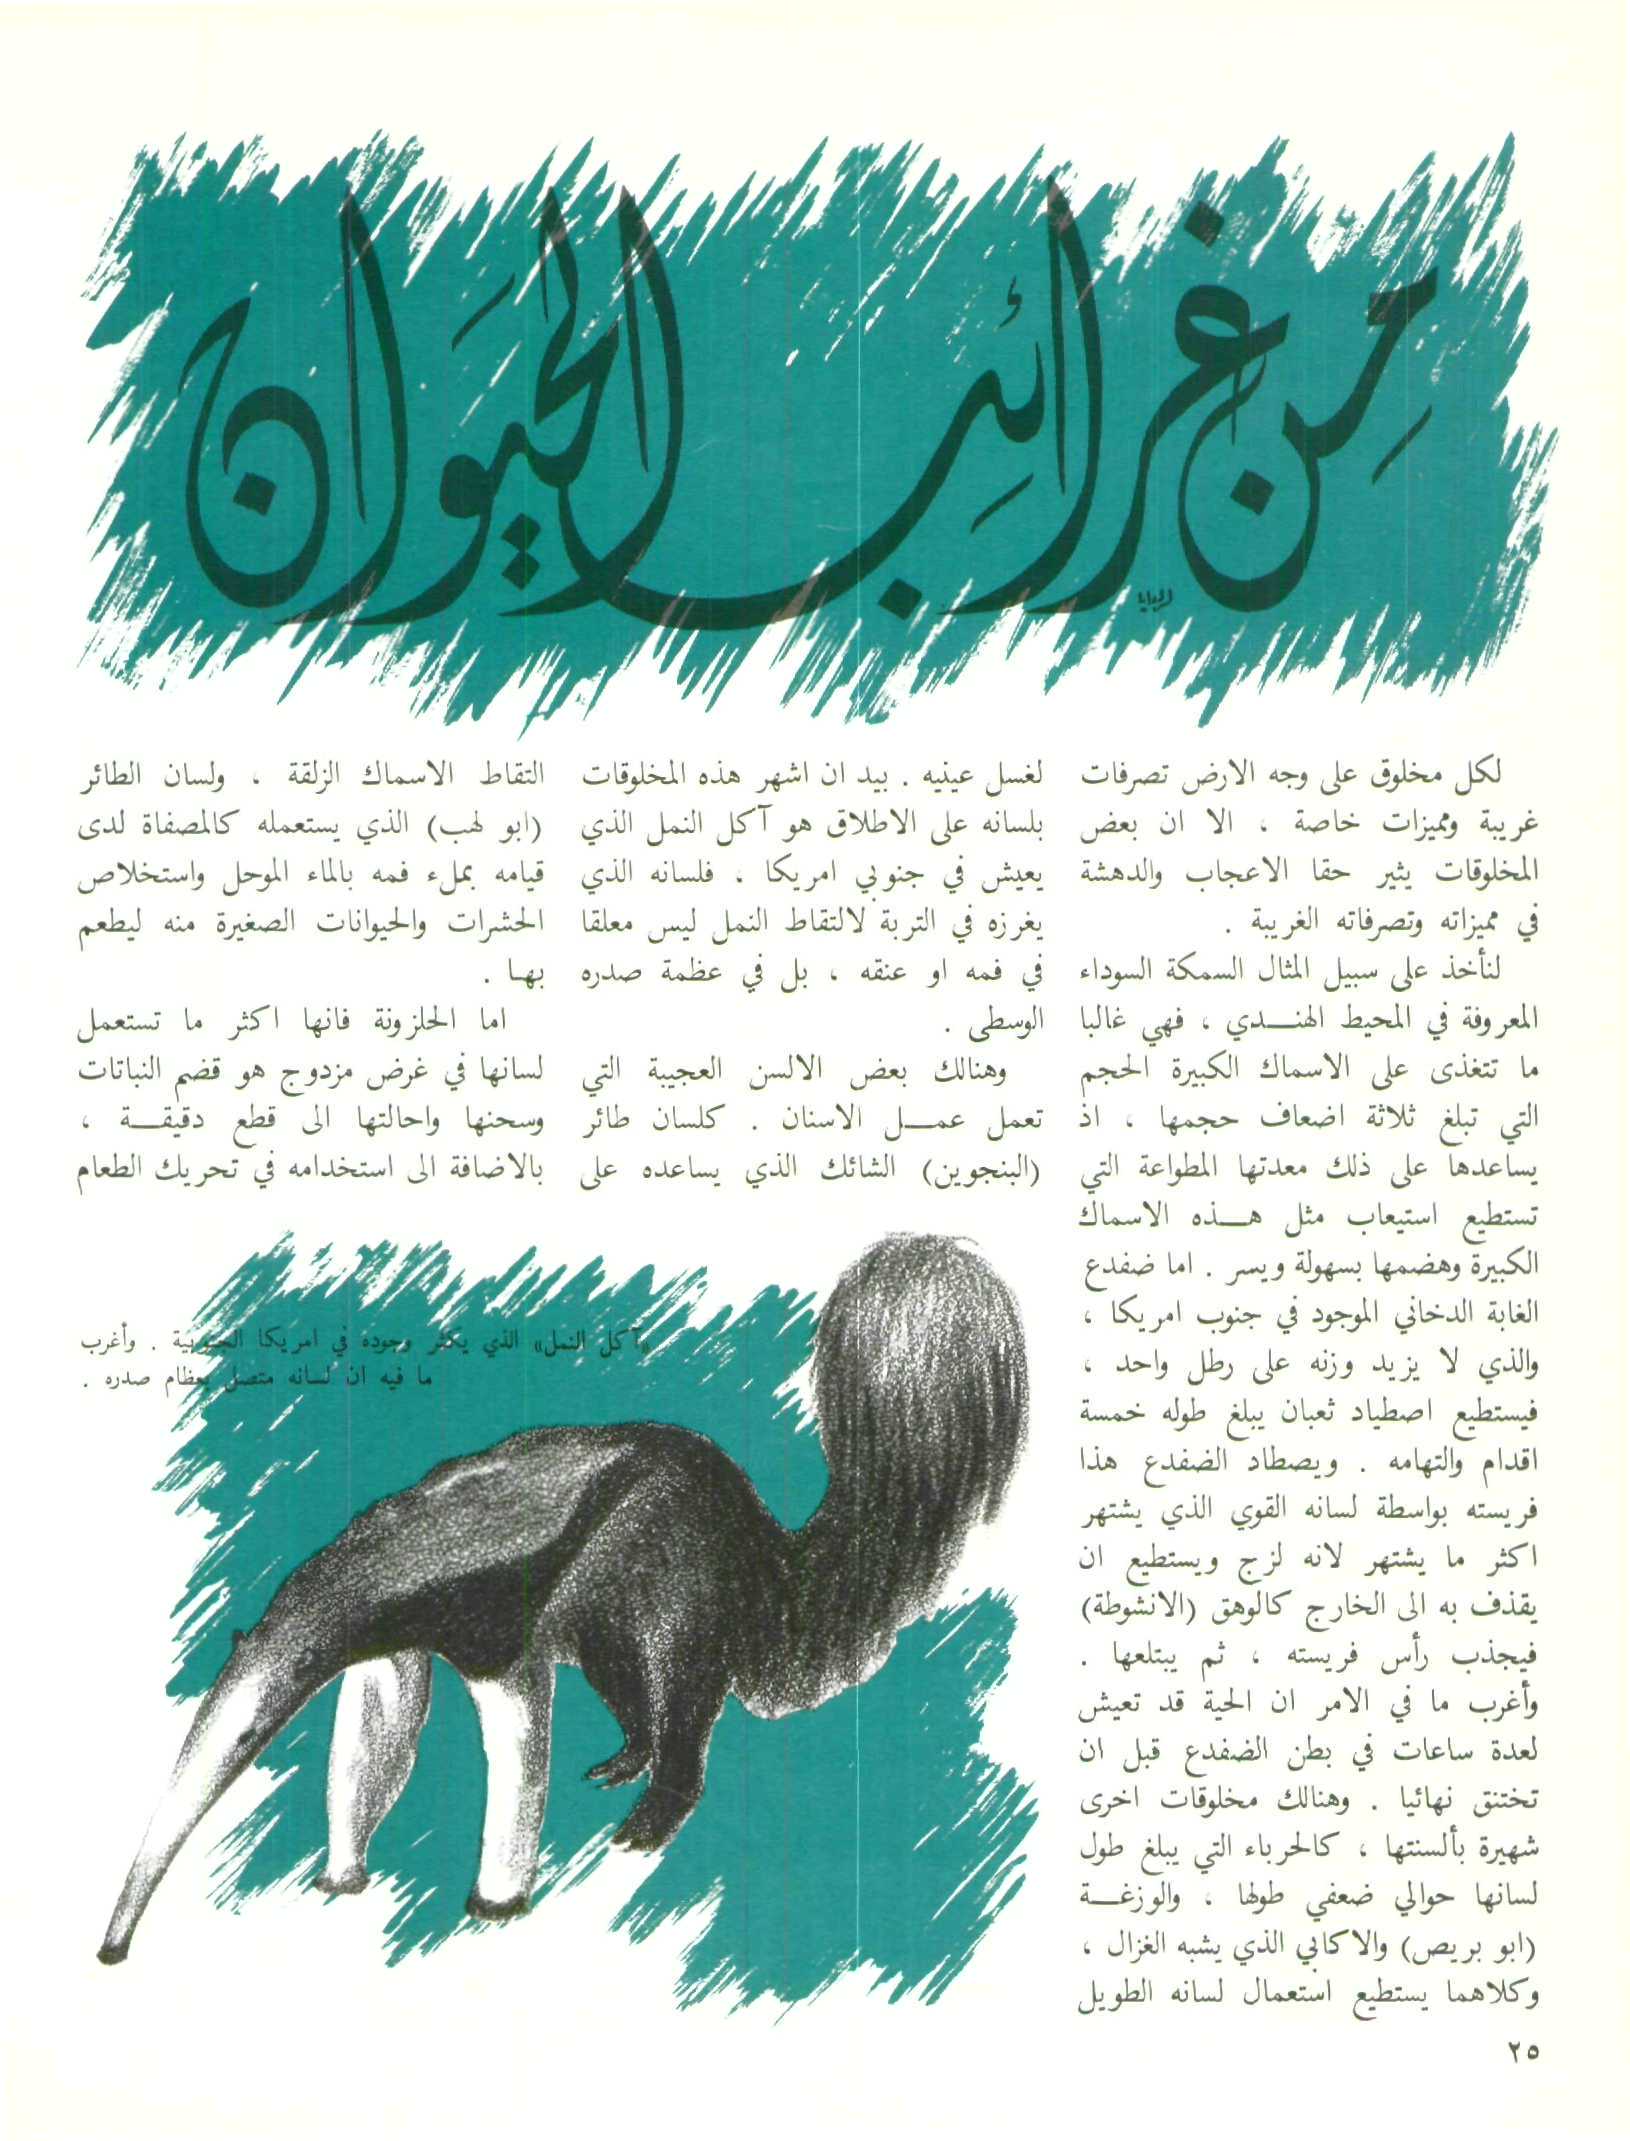 من غرائب الحيوان
لكل مخلوق على وجه الارض تصرفات
غريبة ومميزات خاصة ، الا ان بعض
المخلوقات يثير حقا الاعجاب والدهشة
في مميزاته وتصرفاته الغريبة .
لنأخذ على سبيل المثال السمكة السوداء
المعروفة في المحيط الهنـدي ، فهي غالبا
ما تتغذى على الاسماك الكبيرة الحجم
التي تبلغ ثلاثة اضعاف حجمها ، اذ
يساعدها على ذلك معدتها المطواعة التي
تستطيع استيعاب مثل هـذه الاسماك
الكبيرة وهضمها بسهولة ويسر . اما ضفدع
الغابة الدخاني الموجود في جنوب امريكا ،
والذي لا يزيد وزنه على رطل واحد ،
فيستطيع اصطياد ثعبان يبلغ طوله خمسة
اقدام والتهامه . ويصطاد الضفدع هذا
فريسته بواسطة لسانه القوي الذي يشتهر
اكثر ما يشتهر لانه لزج ويستطيع ان
يقذف به الى الخارج كالوهق (الانشوطة)
فيجذب رأس فريسته ، ثم يبتلعها .
وأغرب ما في الامر ان الحية قد تعيش
لعدة ساعات في بطن الضفدع قبل ان
تختنق نهائيا . وهنالك مخلوقات اخرى
شهيرة بألسنتها ، كالحرباء التي يبلغ طول
لسانها حوالي ضعفي طولها ، والوزغـة
(ابو بريص) والاكابي الذي يشبه الغزال ،
وكلاهما يستطيع استعمال لسانه الطويل
لغسل عينيه . بيد ان اشهر هذه المخلوقات
بلسانه على الاطلاق هو آكل النمل الذي
يعيش في جنوبي امريكا ، فلسانه الذي
يغرزه في التربة لالتقاط النمل ليس معلقا
في فمه او عنقه ، بل في عظمة صدره
الوسطى .
وهنالك بعض الالسن العجيبة التي
تعمل عمـل الاسنان . كلسان طائر
(البنجوين) الشائك الذي يساعده على
التقاط الاسماك الزلقة ، ولسان الطائر
(ابو لهب) الذي يستعمله كالمصفاة لدى
قيامه بملء فمه بالماء الموحل واستخلاص
الحشرات والحيوانات الصغيرة منه ليطعم
بهـا .
اما الحلزونة فانها اكثر ما تستعمل
لسانها في غرض مزدوج هو قضم النباتات
وسحنها واحالتها الى قطع دقيقـة ،
بالاضافة الى استخدامه في تحريك الطعام
«آكل النمل» الذي يكثر وجوده في امريكا الجنوبية . وأغرب
ما فيه ان لسانه متصل بعظام صدره .
٢٥